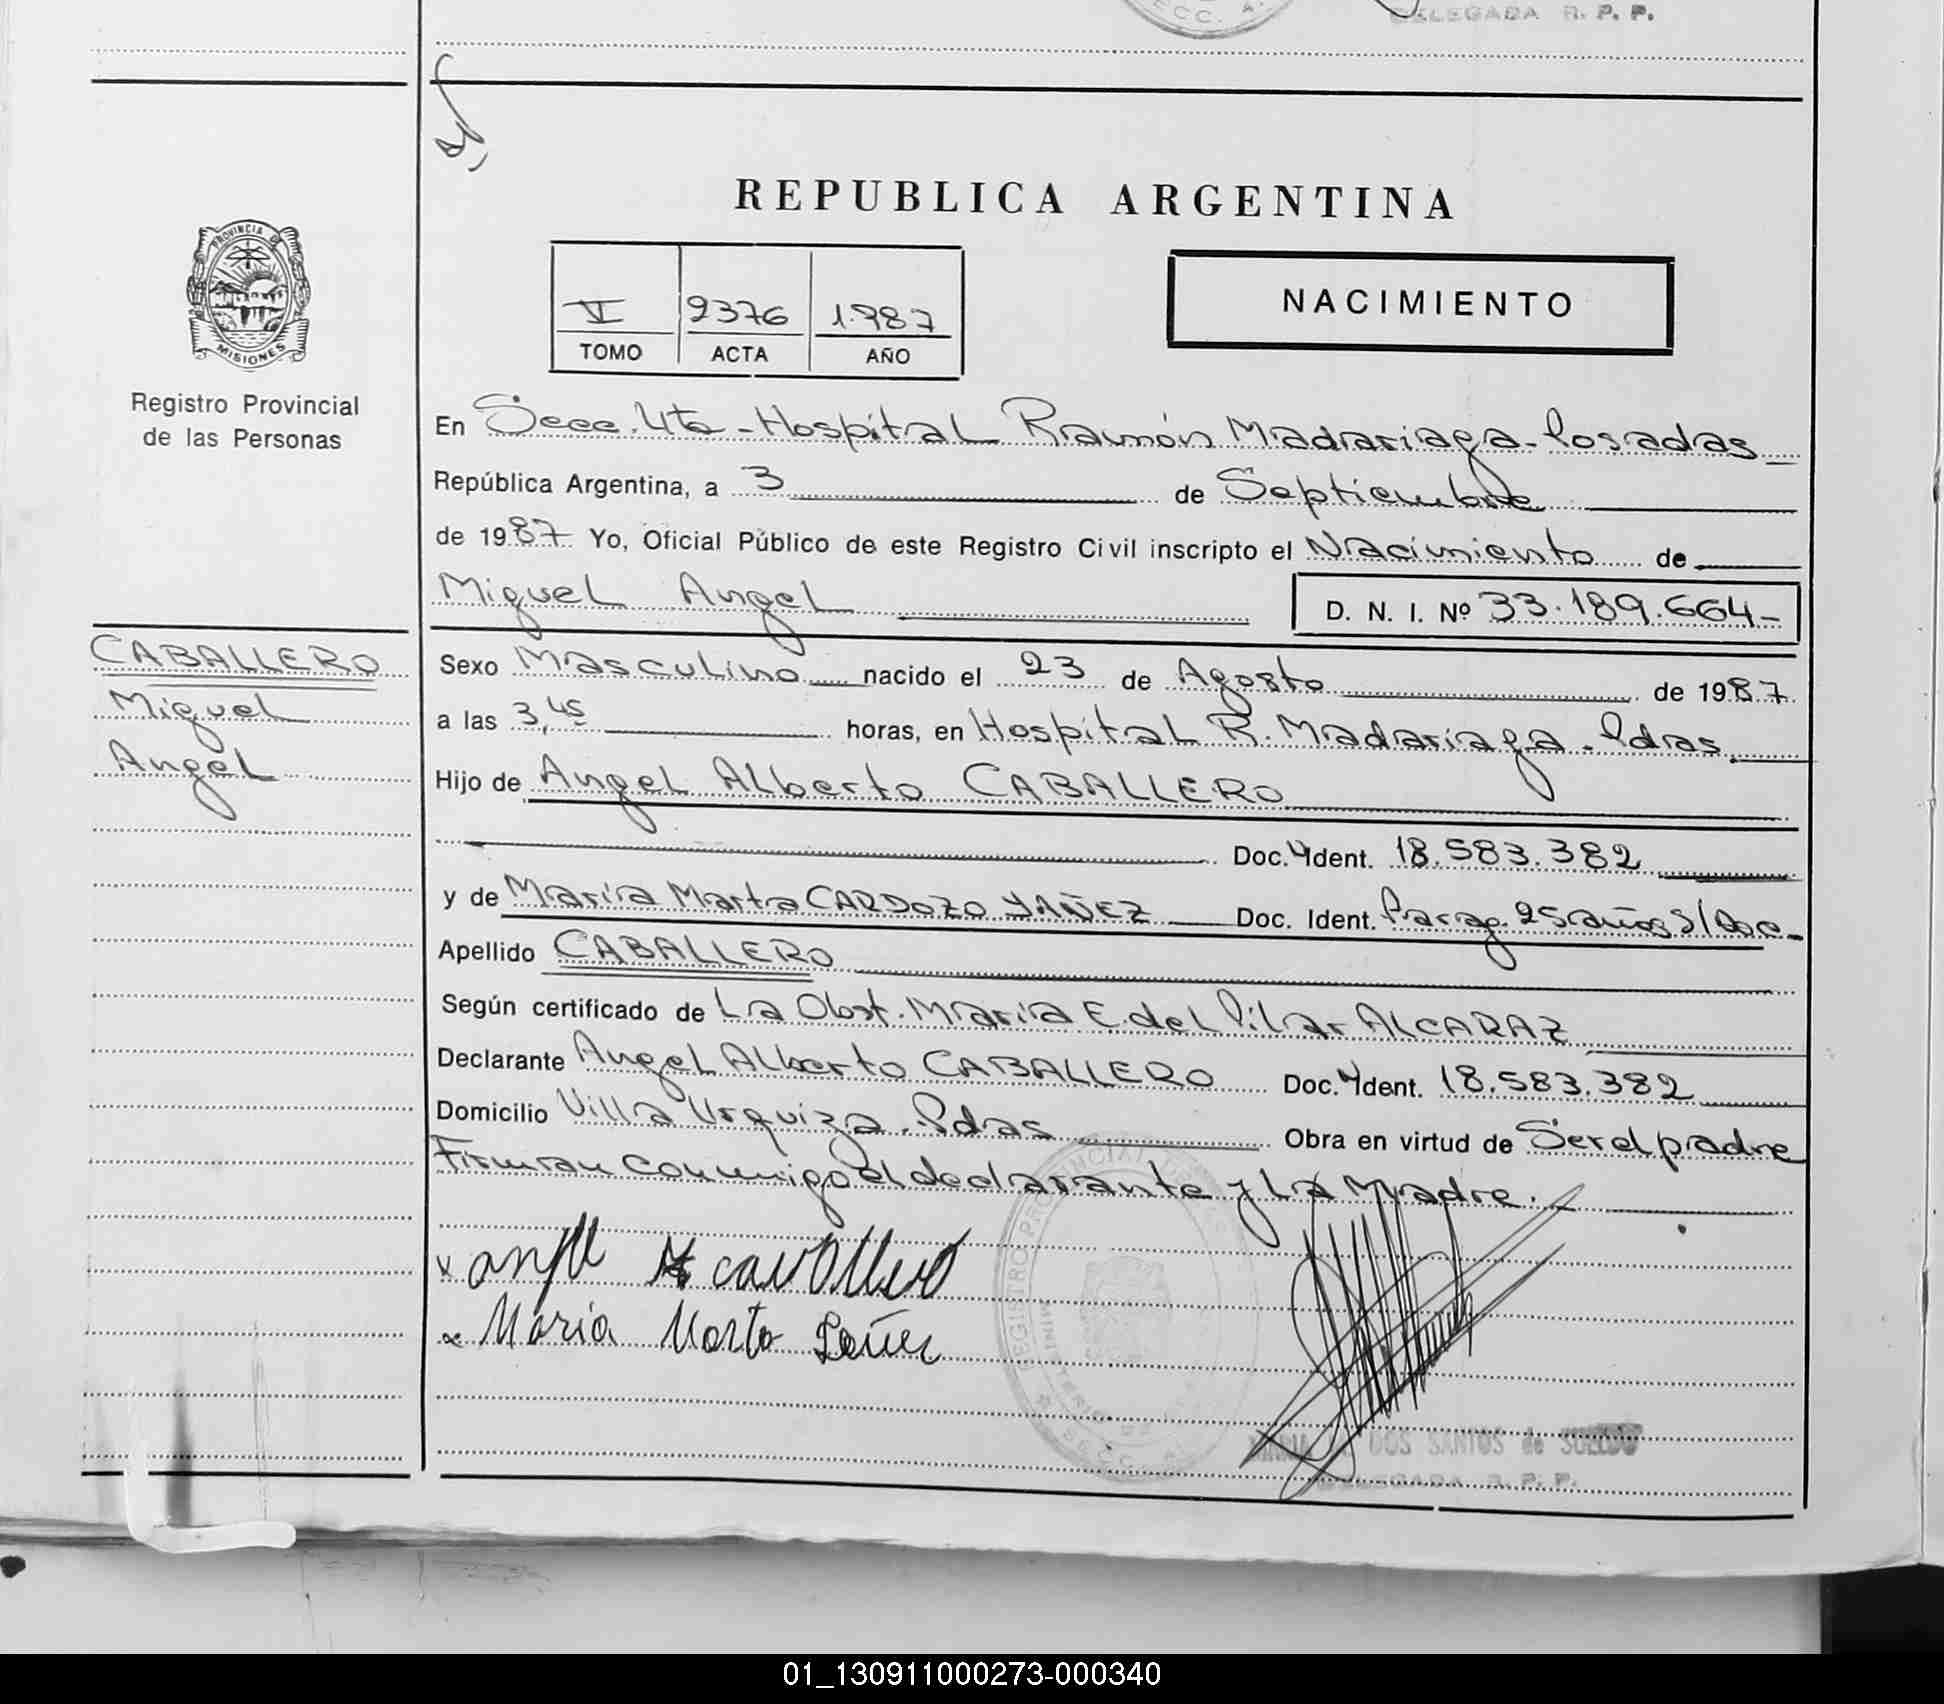 SECC. A.
DELEGADA R. P. P.
REPUBLICA ARGENTINA
PROVINCIA DE
MISIONES
Registro Provincial
de las Personas
VI 2376 1.987
TOMO ACTA AÑO
NACIMIENTO
En Secc. 4ta - Hospital Ramón Madariaga - Posadas
República Argentina, a 3 de Septiembre
de 1987 Yo, Oficial Público de este Registro Civil inscripto el Nacimiento de
Miguel Angel D. N. I. Nº 33.189.664-
CABALLERO
Miguel
Angel
Sexo Masculino nacido el 23 de Agosto de 1987
a las 3,45 horas, en Hospital R. Madariaga - Pdas
Hijo de Angel Alberto CABALLERO
Doc. Ident. 18.583.382
y de María Marta CARDOZO YAÑEZ Doc. Ident. Parag. 25 años S/Doc-
Apellido CABALLERO
Según certificado de La Obst. María E. del Pilar ALCARAZ
Declarante Angel Alberto CABALLERO Doc. Ident. 18.583.382
Domicilio Villa Urquiza - Pdas Obra en virtud de Ser el padre
Firman conmigo el declarante y La Madre.
REGISTRO PROVINCIAL
MINISTERIO
SECC.
x angel A cavallero
x Maria Marta
MARIA DOS SANTOS de
DELEGADA R. P. P.
01_130911000273-000340